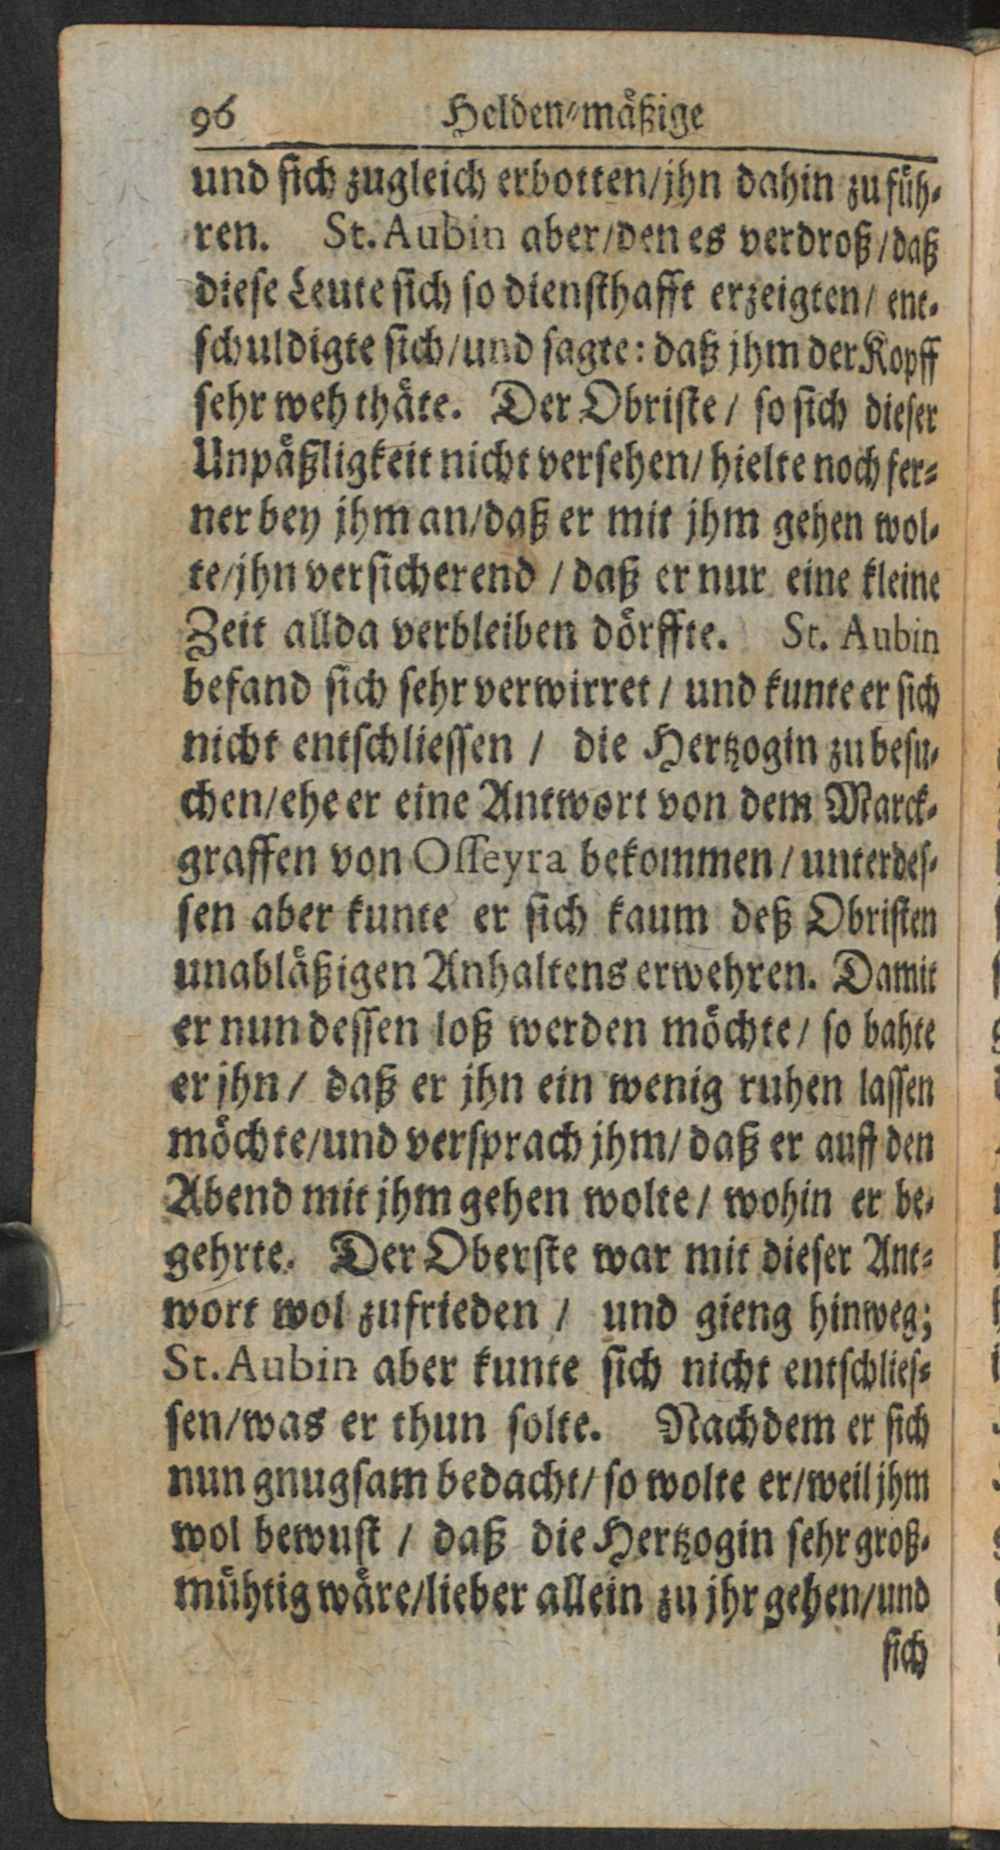 96 Helden-mäßige
und sich zugleich erbotten/jhn dahin zu füh-
ren. St. Aubin aber/den es verdroß/daß
diese Leute sich so diensthafft erzeigten/ ent-
schuldigte sich/und sagte: daß jhm der Kopff
sehr weh thäte. Der Obriste/ so sich dieser
Unpäßligkeit nicht versehen/ hielte noch fer-
ner bey jhm an/daß er mit jhm gehen wol-
te/jhn versicherend / daß er nur eine kleine
Zeit allda verbleiben dörffte. St. Aubin
befand sich sehr verwirret / und kunte er sich
nicht entschliessen / die Hertzogin zu besu-
chen/ehe er eine Antwort von dem Marck-
graffen von Osseyra bekommen / unterdes-
sen aber kunte er sich kaum deß Obristen
unabläßigen Anhaltens erwehren. Damit
er nun dessen loß werden möchte/ so bahte
er jhn/ daß er jhn ein wenig ruhen lassen
möchte/und versprach jhm/ daß er auff den
Abend mit jhm gehen wolte/ wohin er be-
gehrte. Der Oberste war mit dieser Ant-
wort wol zufrieden / und gieng hinweg;
St. Aubin aber kunte sich nicht entschlies-
sen/was er thun solte. Nachdem er sich
nun gnugsam bedacht/ so wolte er/weil jhm
wol bewust / daß die Hertzogin sehr groß-
mühtig wäre/lieber allein zu jhr gehen/und
sich